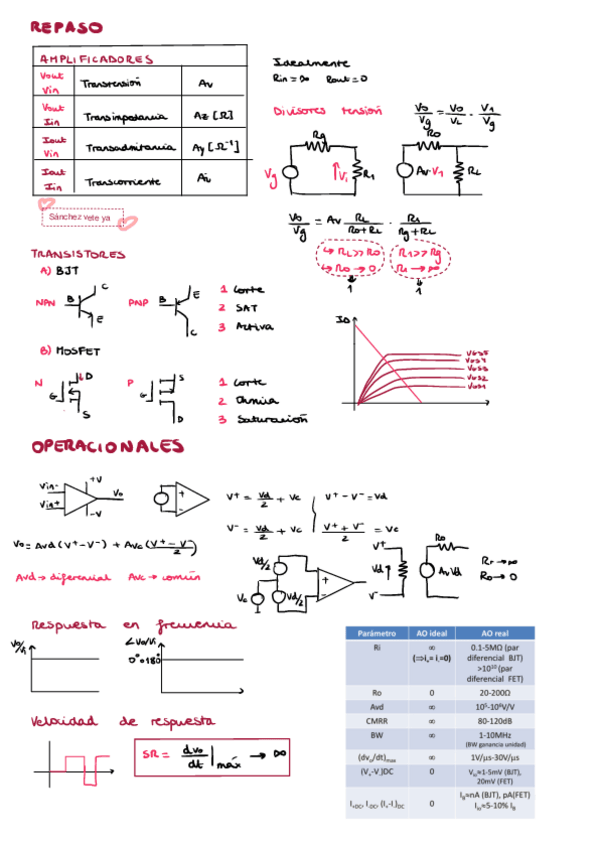 REPASO
AMPLIFICADORES
Vout
Vin
Transtensión
Av
Vout
Iin
Transimpedancia
Az [Ω]
Iout
Vin
Transadmitancia
Ay [Ω⁻¹]
Iout
Iin
Transcorriente
Ai
Sánchez vete ya
Idealmente
Rin = ∞ Rout = 0
Divisores tensión
Vo/Vg = Vo/VL · V1/Vg
Rg
Vg
Vi
R1
Ro
Av·V1
RL
Vo/Vg = Av RL/(Ro+RL) · R1/(Rg+RL)
↳ RL >> Ro
↳ Ro → 0
R1 >> Rg
R1 → ∞
1
1
TRANSISTORES
A) BJT
NPN
B
C
E
PNP
B
E
C
1 Corte
2 SAT
3 Activa
B) MOSFET
N
G
D
S
P
G
S
D
1 Corte
2 Ohmica
3 Saturación
ID
VGS5
VGS4
VGS3
VGS2
VGS1
OPERACIONALES
Vin-
Vin+
+V
-V
Vo
+
-
V⁺ = Vd/2 + Vc
V⁺ - V⁻ = Vd
V⁻ = Vd/2 + Vc
V⁺ + V⁻/2 = Vc
Vo = Avd (V⁺ - V⁻) + Avc (V⁺ - V⁻/2)
Avd → diferencial Avc → común
Vd/2
Vc
Vd/2
+
-
V⁺
Vd
V⁻
Ro
Av Vd
Ro → 0
Respuesta en frecuencia
Vo/Vi
∠Vo/Vi
0° o 180°
Velocidad de respuesta
SR = dvo/dt | máx → ∞
Parámetro AO ideal AO real
Ri ∞ (⇒i₊= i₋=0) 0.1-5MΩ (par diferencial BJT) >10¹⁰ (par diferencial FET)
Ro 0 20-200Ω
Avd ∞ 10⁵-10⁶V/V
CMRR ∞ 80-120dB
BW ∞ 1-10MHz (BW ganancia unidad)
(dvₒ/dt)max ∞ 1V/μs-30V/μs
(V₊-V₋)DC 0 VIO≈1-5mV (BJT), 20mV (FET)
I+DC, I-DC, (I₊-I₋)DC 0 IB≈nA (BJT), pA(FET) IIO≈5-10% IB